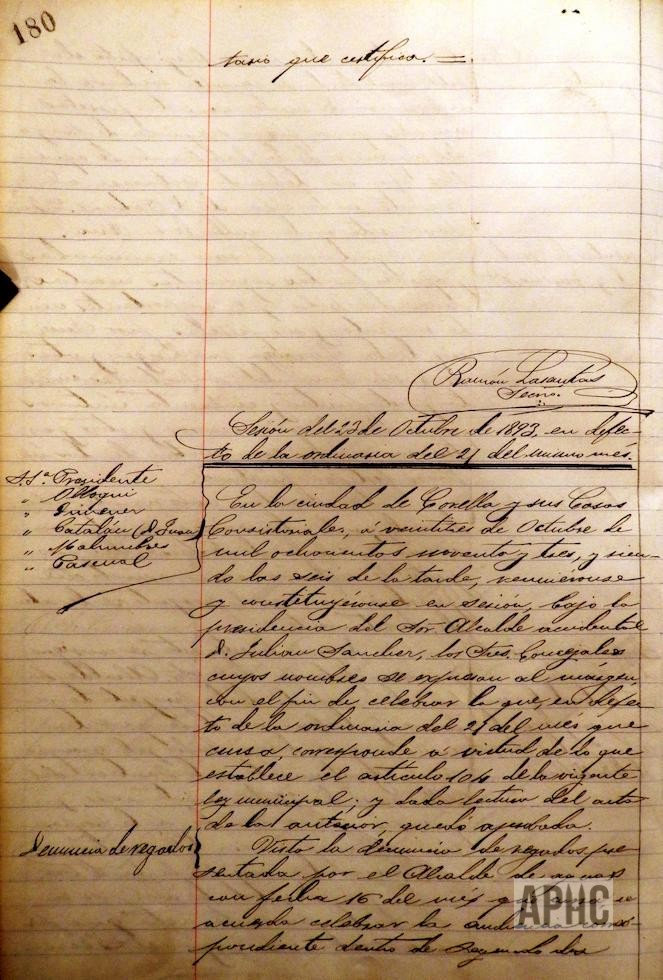 180
tario que certifica. =
Ramón Lasantas
Secrio.
Sesión del 23 de Octubre de 1893, en defec-
to de la ordinaria del 21 del mismo mes.
S.Sª. Presidente
" Olloqui
"
" Catalán (D. Juan)
" Malumbres
" Pascual
En la ciudad de Corella y sus Casas
Consistoriales, á veintitres de Octubre de
mil ochocientos noventa y tres, y sien-
do las seis de la tarde, reuniéronse
y constituyéronse en sesión, bajo la
presidencia del Sor. Alcalde accidental
D. Julian Sanchez, los Sres. Concejales
cuyos nombres se expresan al márgen,
con el fin de celebrar la que, en defec-
to de la ordinaria del 21 del mes que
cursa, corresponde á virtud de lo que
establece el artículo 104 de la vigente
ley municipal; y dada lectura del acta
de la anterior, quedó aprobada.
Denuncia de regados
Vista la denuncia de regados pre-
sentada por el Alcalde de aguas
con fecha 16 del mes que se
acuerda celebrar la corres-
pondiente dentro de
APHC